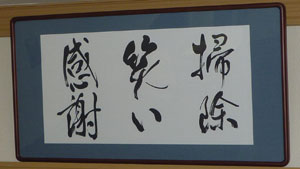 掃除
笑い
感謝